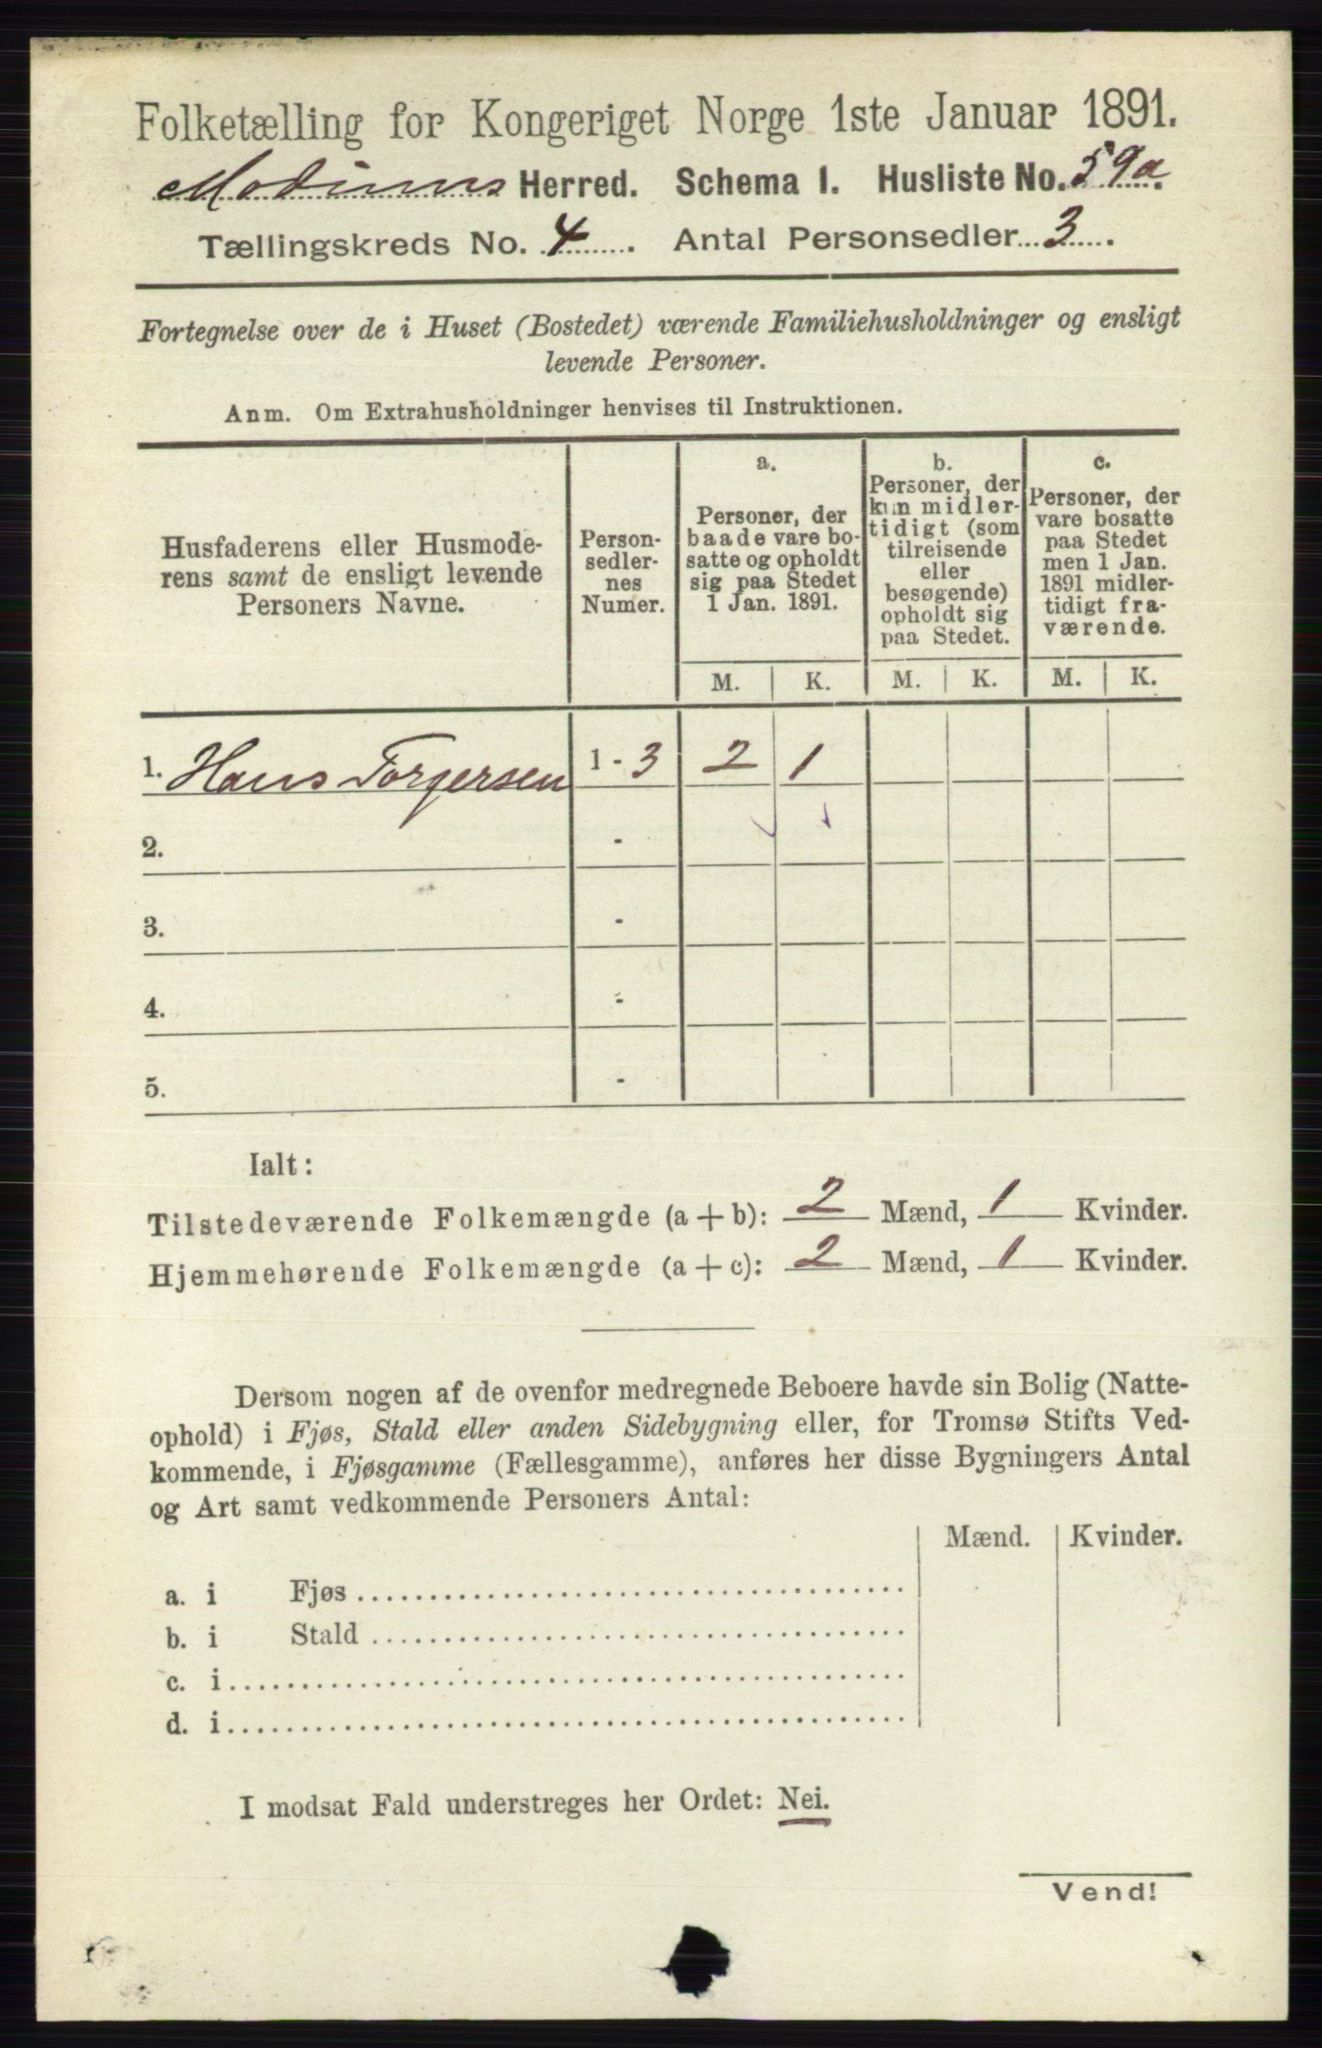 Folketælling for Kongeriget Norge 1ste Januar 1891.
Modums Herred. Schema 1. Husliste No. 59a.
Tællingskreds No. 4. Antal Personsedler 3.
Fortegnelse over de i Huset (Bostedet) værende Familiehusholdninger og ensligt
levende Personer.
Anm. Om Extrahusholdninger henvises til Instruktionen.
Husfaderens eller Husmode-
rens samt de ensligt levende
Personers Navne.
Person-
sedler-
nes
Numer.
a.
Personer, der
baade vare bo-
satte og opholdt
sig paa Stedet
1 Jan. 1891.
b.
Personer, der
kun midler-
tidigt (som
tilreisende
eller
besøgende)
opholdt sig
paa Stedet.
c.
Personer, der
vare bosatte
paa Stedet
men 1 Jan.
1891 midler-
tidigt fra-
værende.
M. K. M. K. M. K.
1. Hans Torgersen 1 - 3 2 1
2. -
3. -
4. -
5. -
Ialt:
Tilstedeværende Folkemængde (a + b): 2 Mænd, 1 Kvinder.
Hjemmehørende Folkemængde (a + c): 2 Mænd, 1 Kvinder.
Dersom nogen af de ovenfor medregnede Beboere havde sin Bolig (Natte-
ophold) i Fjøs, Stald eller anden Sidebygning eller, for Tromsø Stifts Ved-
kommende, i Fjøsgamme (Fællesgamme), anføres her disse Bygningers Antal
og Art samt vedkommende Personers Antal:
Mænd. Kvinder.
a. i Fjøs
b. i Stald
c. i
d. i
I modsat Fald understreges her Ordet: Nei.
Vend!